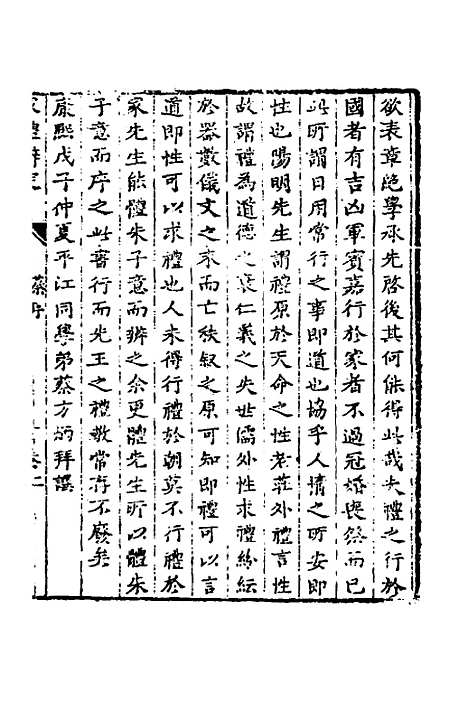 欲表章絕學承先啓後其何能得此哉夫禮之行於
國者有吉凶軍賓嘉行於家者不過冠婚喪祭而已
此所謂日用常行之事即道也協乎人情之所安即
性也陽明先生謂禮原於天命之性老莊外禮言性
故謂禮為道德之衰仁義之失世儒外性求禮紛紜
於器數儀文之末而亡秩叙之原可知即禮可以言
道即性可以求禮也人未得行禮於朝莫不行禮於
家先生能體朱子意而辨之余更體先生所以體朱
子意而序之此書行而先王之禮教常存不廢矣
康熙戊子仲夏平江同學弟蔡方炳拜譔
家禮辨定
蔡序